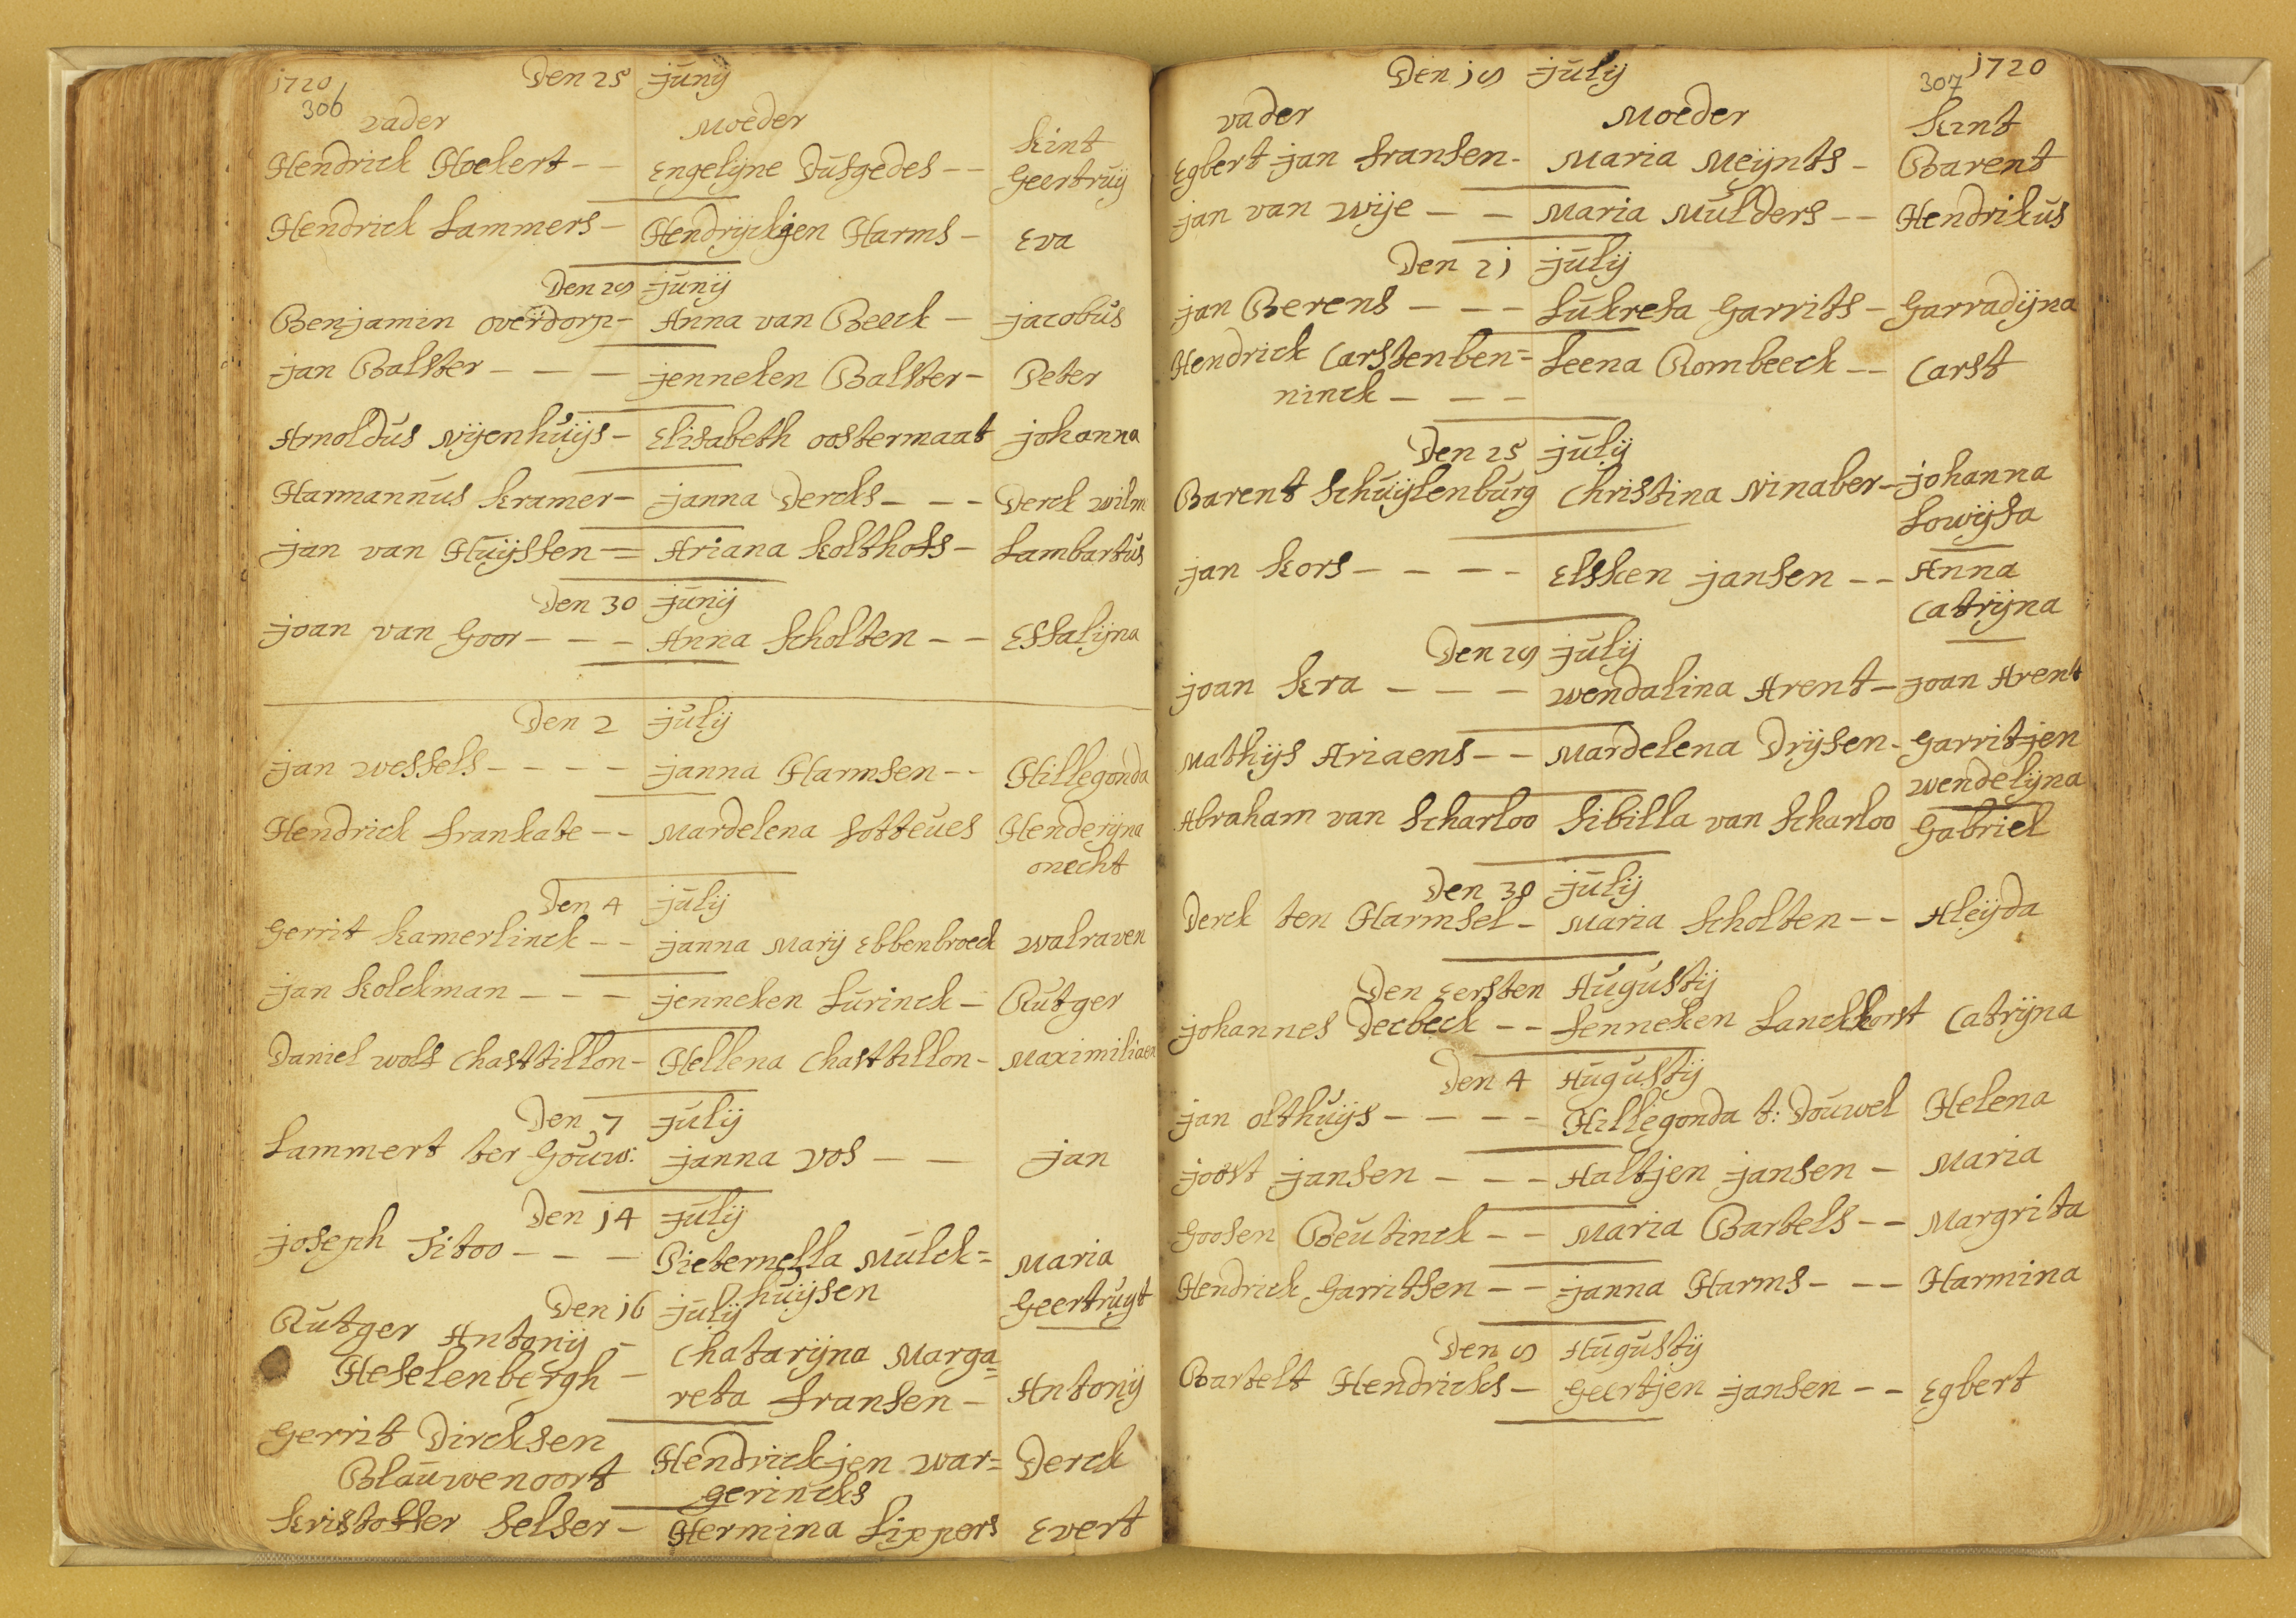 1720 Den 25 junij
306
vader Moeder kint
Hendrick Hoekert - - Engelijne Dusgedes - - Geertruij
Hendrick Lammers - Hendrijckjen Harms - Eva
Den 29 junij
Benjamin overdorp - Anna van Beeck - jacobus
jan Balster - - - jenneken Balster - Peter
Arnoldus Nijenhuijs - Elisabeth oostermaat johanna
Harmannus kramer - janna Dercks - - - Derck wilm
jan van Huijssen = Ariana kolthofs - Lambartus
Den 30 junij
joan van Goor - - - Anna Scholten - - Essalijna
Den 2 julij
jan wessels - - - - janna Harmsen - - Hillegonda
Hendrick frankate - - Mardelena Sotteues Henderijna
onecht
Den 4 julij
Gerrit kamerlinck - - janna Marij Ebbenbroeck walraven
jan kolckman - - - jenneken Lurinck - Rutger
Daniel wolf Chasttillon - Hellena Chasttillon - Maximiliaen
Den 7 julij
Lammert ter Gouw: janna vos - - jan
Den 14 julij
joseph Sitoo - - - Pieternella Mulck= Maria
huijsen Geertruyt
Den 16 julij
Rutger Antonij - Chatarijna Marga=
Heselenbergh - reta fransen - Antonij
Gerrit Dircksen
Blauwenoort Hendrickjen war= Derck
gerincks
kristoffer Selser - Hermina Lippers Evert
Den 19 julij 1720
307
vader Moeder kint
Egbert jan fransen - Maria Meijnts - Barent
jan van wije - - Maria Mulders - - Hendrikus
Den 21 julij
jan Berens - - - Lukresa Garrits - Garradijna
Hendrick Carstenben= Leena Rombeeck - - Carst
ninck - - -
Den 25 julij
Barent Schuijlenburg Christina Ninaber - johanna
Lowijsa
jan kors - - - - Elsken jansen - - Anna
Catrijna
Den 29 julij
joan kra - - - wendalina Arent - joan Arent
Mathijs Ariaens - - Mardelena Drijsen - Garritjen
wendelijna
Abraham van Scharloo Sibilla van Scharloo Gabriel
Den 30 julij
Derck ten Harmsel - Maria Scholten - - Aleijda
Den Eersten Augustij
johannes Decbeck - - fenneken Lanckhorst Catrijna
Den 4 Augustij
jan olthuijs - - - - Hillegonda t: Douwel Helena
joost jansen - - - Aaltjen jansen - Maria
Goosen Beutinck - - Maria Bartels - - Margrita
Hendrick Garritsen - - janna Harms - - - Harmina
Den 9 Augustij
Bartelt Hendricks - Geertjen jansen - - Egbert